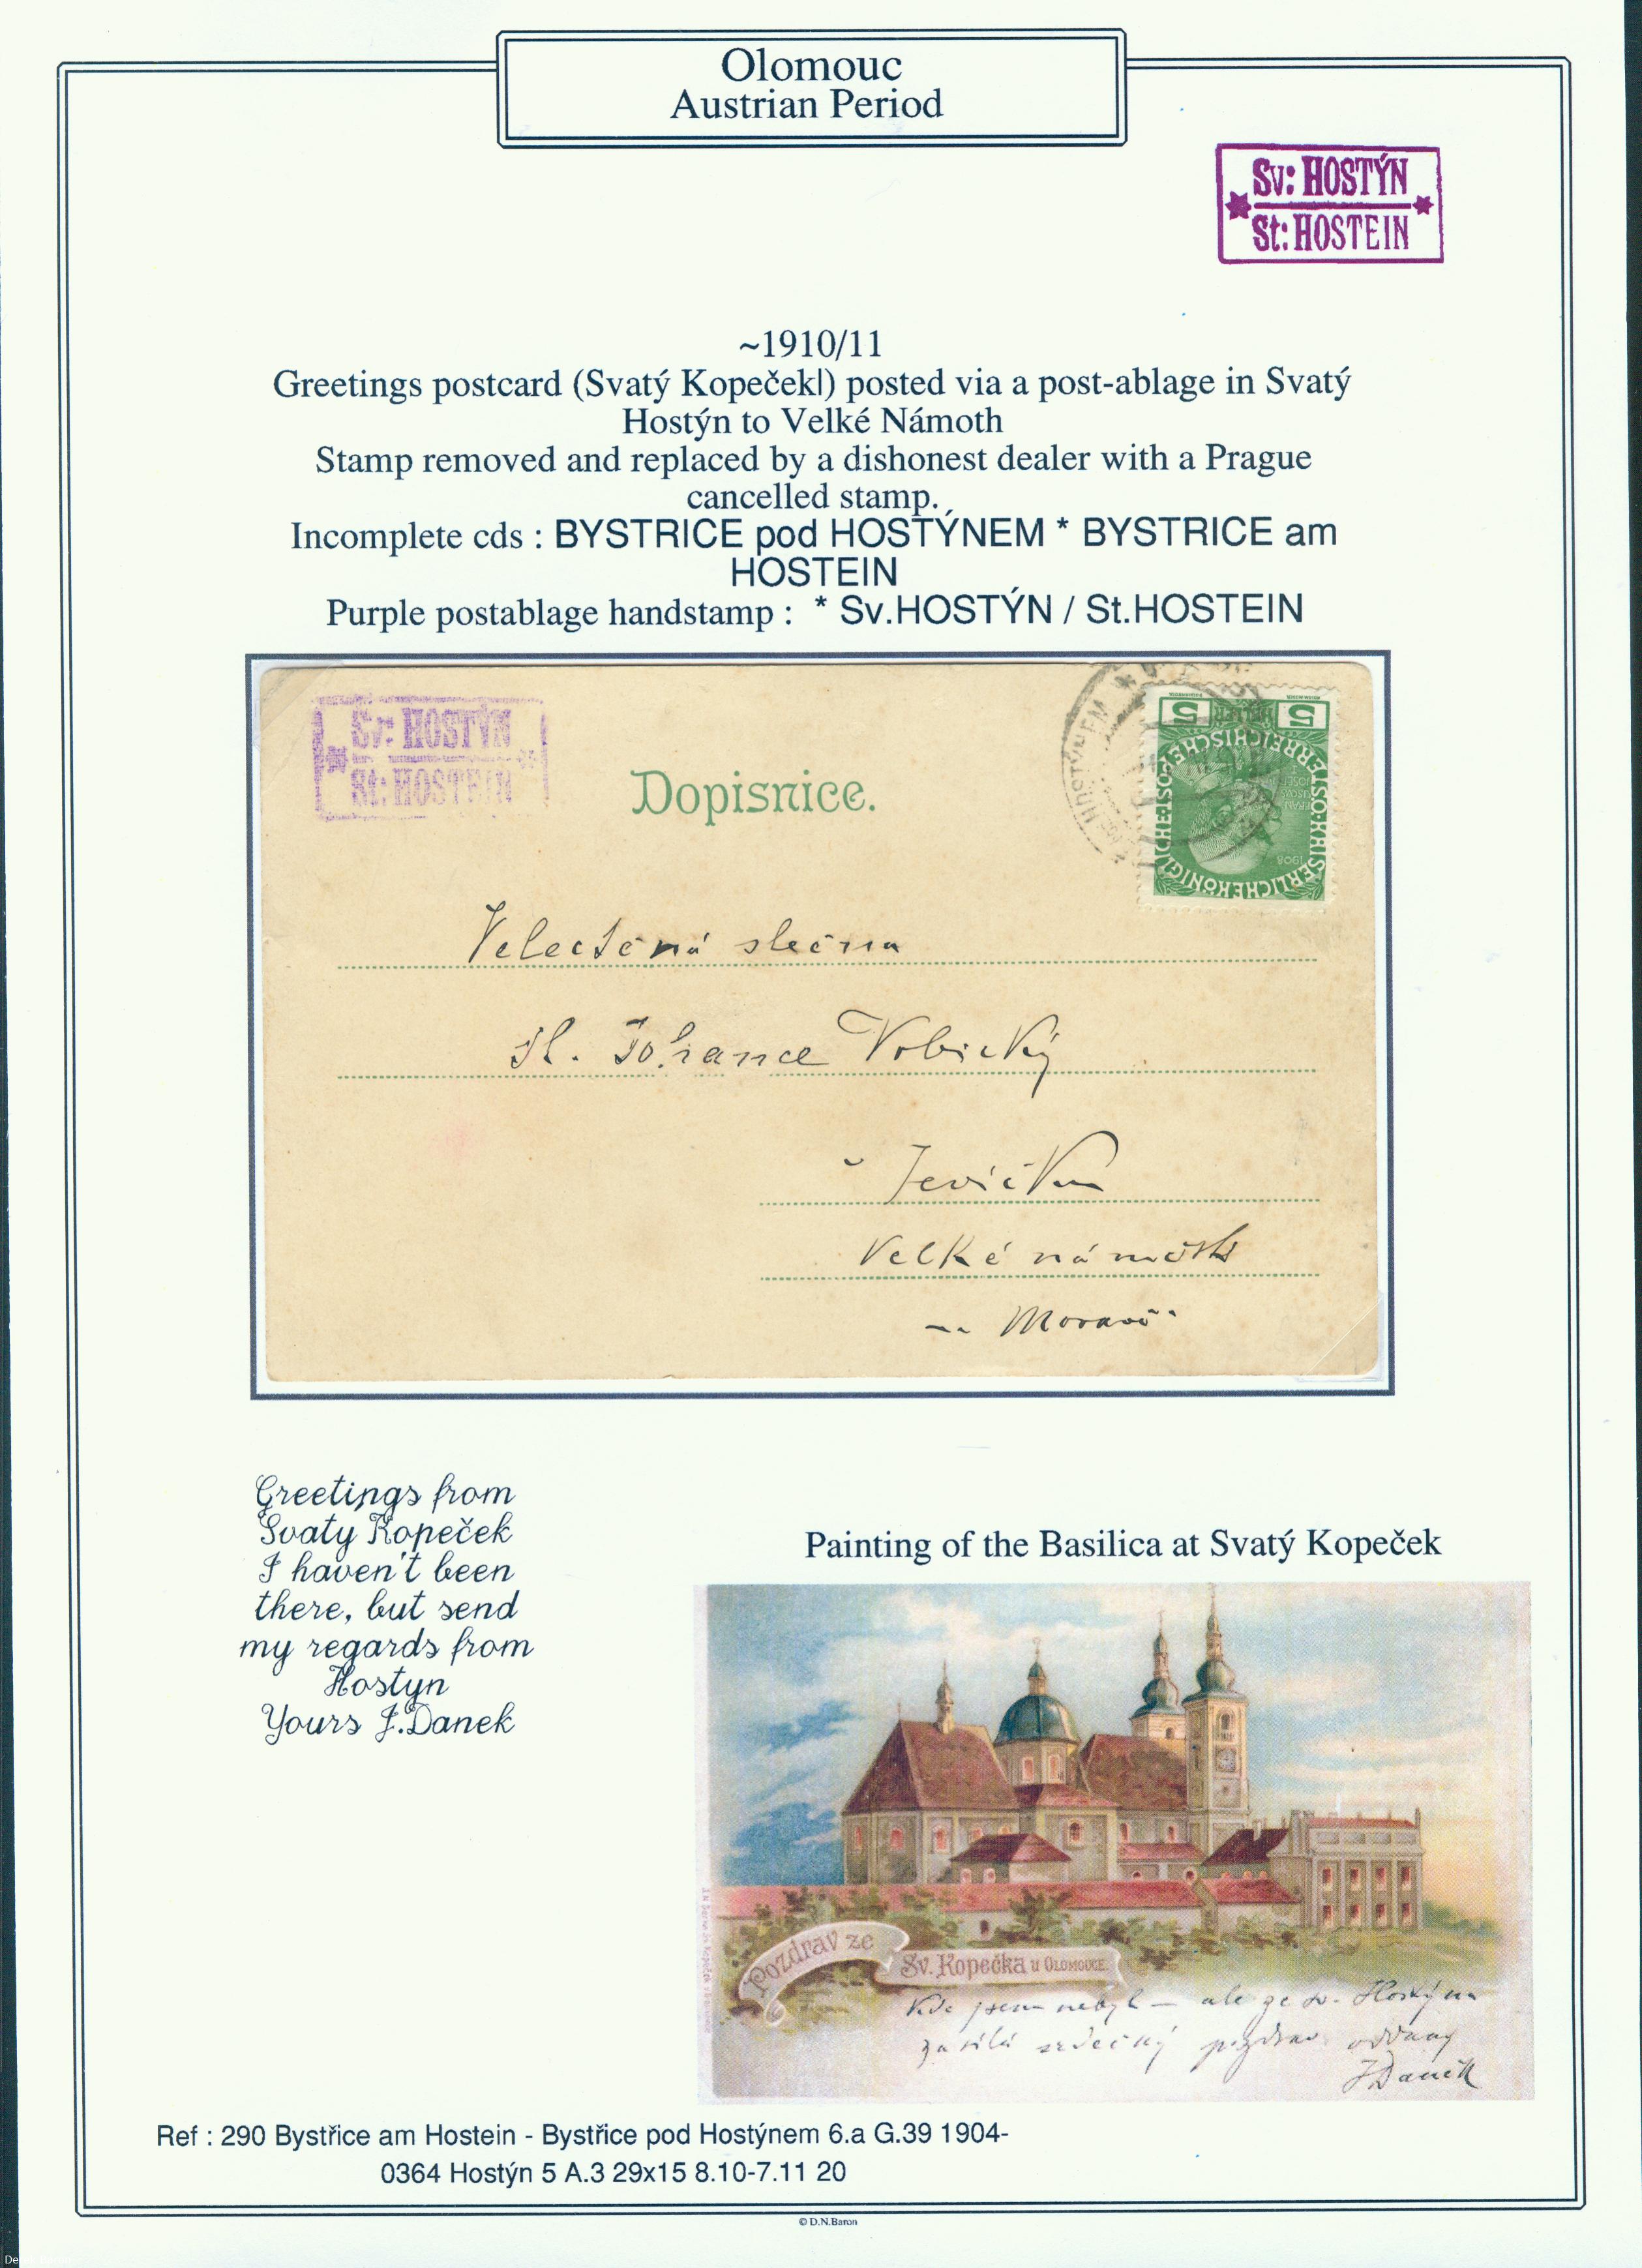 Olomouc
Austrian Period
Sv: HOSTÝN
St: HOSTEIN
~1910/11
Greetings postcard (Svatý Kopečekl) posted via a post-ablage in Svatý
Hostýn to Velké Námoth
Stamp removed and replaced by a dishonest dealer with a Prague
cancelled stamp.
Incomplete cds : BYSTRICE pod HOSTÝNEM * BYSTRICE am
HOSTEIN
Purple postablage handstamp : * Sv.HOSTÝN / St.HOSTEIN
Sv: HOSTÝN
St: HOSTEIN
HOSTÝNEM
5 HELLER 5
1908
Dopisnice.
Velectěná slečna
sl.
Jevíčku
Velké
Moravě
Greetings from
Svaty Kopeček
I haven't been
there, but send
my regards from
Hostyn
Yours J.Danek
Painting of the Basilica at Svatý Kopeček
Pozdrav ze
Sv. Kopečka u OLOMOUCE.
Kde jsem nebyl – ale ze sv. Hostýna
zasílá srdečný pozdrav oddaný
JDaněk
Ref : 290 Bystřice am Hostein - Bystřice pod Hostýnem 6.a G.39 1904-
0364 Hostýn 5 A.3 29x15 8.10-7.11 20
© D.N.Baron